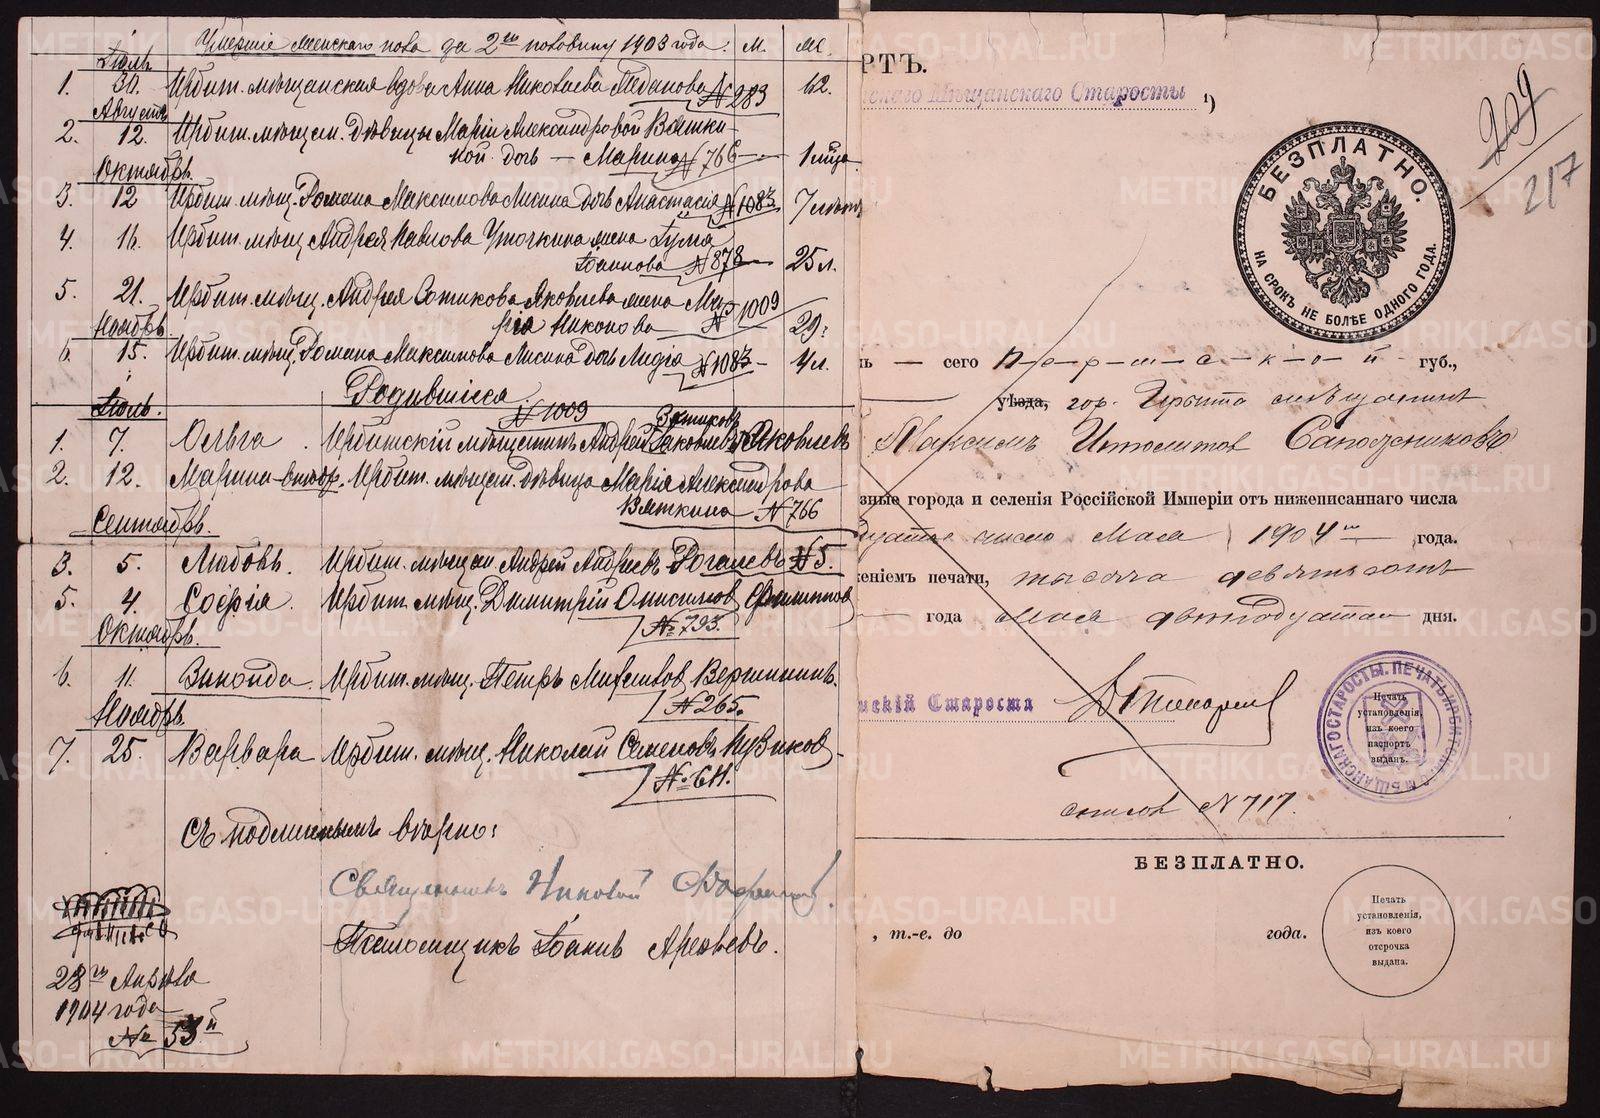 Умершіе женскаго пола за 2ю половину 1903 года. м. ж.
Іюль
1. 30. Ирбит. мѣщанская вдова Анна Николаева
№ 283 62.
Августъ
2. 12. Ирбит. мѣщан. дѣвицы Маріи Александровой Вятки-
ной дочь — Марина № 766 —
Октябрь.
3. 12 Ирбит. мѣщ. Романа Максимова Лисина дочь Анастасія № 1083 7 лѣтъ
4. 16. Ирбит. мѣщ. Андрея Павлова Уточкина жена
№ 878 — 25 л.
5. 21. Ирбит. мѣщ. Андрея Яковлева жена Ма-
рія Никонова № 1009 29.
Ноябрь.
6. 15. Ирбит. мѣщ. Романа Максимова Лисина дочь Лидія № 1083 — 4 л.
Родившіеся.
Іюль. № 1009
1. 7. Ольга. Ирбитскій мѣщанинъ Андрей Яковлевъ
2. 12. Марина Ирбит. мѣщан. дѣвица Марія Александрова
Вяткина № 766
Сентябрь.
3. 5. Любовь. Ирбит. мѣщан. Андрей Андреевъ Рогалевъ № 5.
5. 4. Софія. Ирбит. мѣщ. Димитрій Онисимовъ Филиппов
№ 793.
Октябрь.
6. 11. Зинаида. Ирбит. мѣщ. Петръ Михайлов Вершининъ.
№ 265.
Ноябрь
7. 25. Варвара Ирбит. мѣщ. Николай Семеновъ Кузиков
№ 611.
Съ подлиннымъ вѣрно:
Священникъ Николай
Псаломщикъ Іоаннъ
28го Апрѣля
1904 года
№ 53й
РТЪ.
скаго Мѣщанскаго Старосты 1)
209
217
БЕЗПЛАТНО.
НА СРОКЪ НЕ БОЛѢЕ ОДНОГО ГОДА.
ль — сего П-е-р-м-с-к-о-й губ.,
уѣзда, гор. Ирбита мѣщанинъ
Максимъ Иполитов Сапожниковъ
зные города и селенія Россійской Имперіи отъ нижеписаннаго числа
число Мая 1904го года.
женіемъ печати, тысяча девятьсотъ
года Мая двенадцатаго дня.
нскій Староста
ПЕЧАТЬ ИРБИТСКАГО МѢЩАНСКАГО СТАРОСТЫ.
Печать
установленія,
изъ коего
паспортъ
выданъ.
список № 717.
БЕЗПЛАТНО.
, т.-е. до года.
Печать
установленія,
изъ коего
отсрочка
выдана.
METRIKI.GASO-URAL.RU